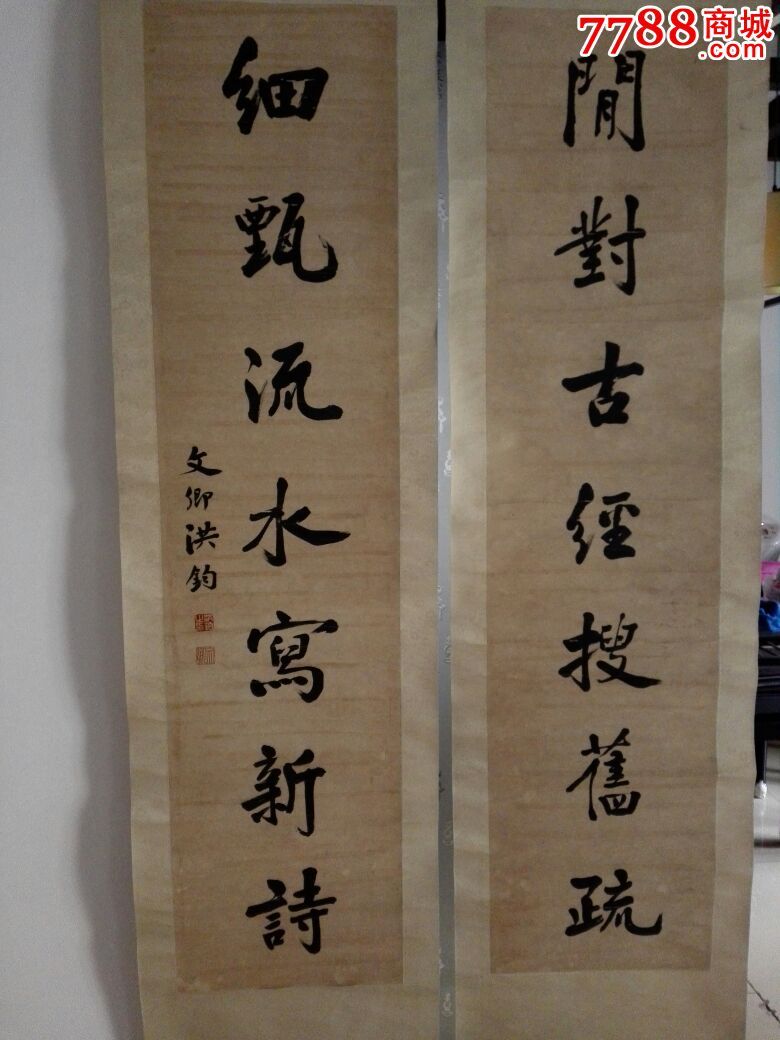 7788商城
.com
閒對古經搜舊疏
細甄流水寫新詩
文卿洪鈞